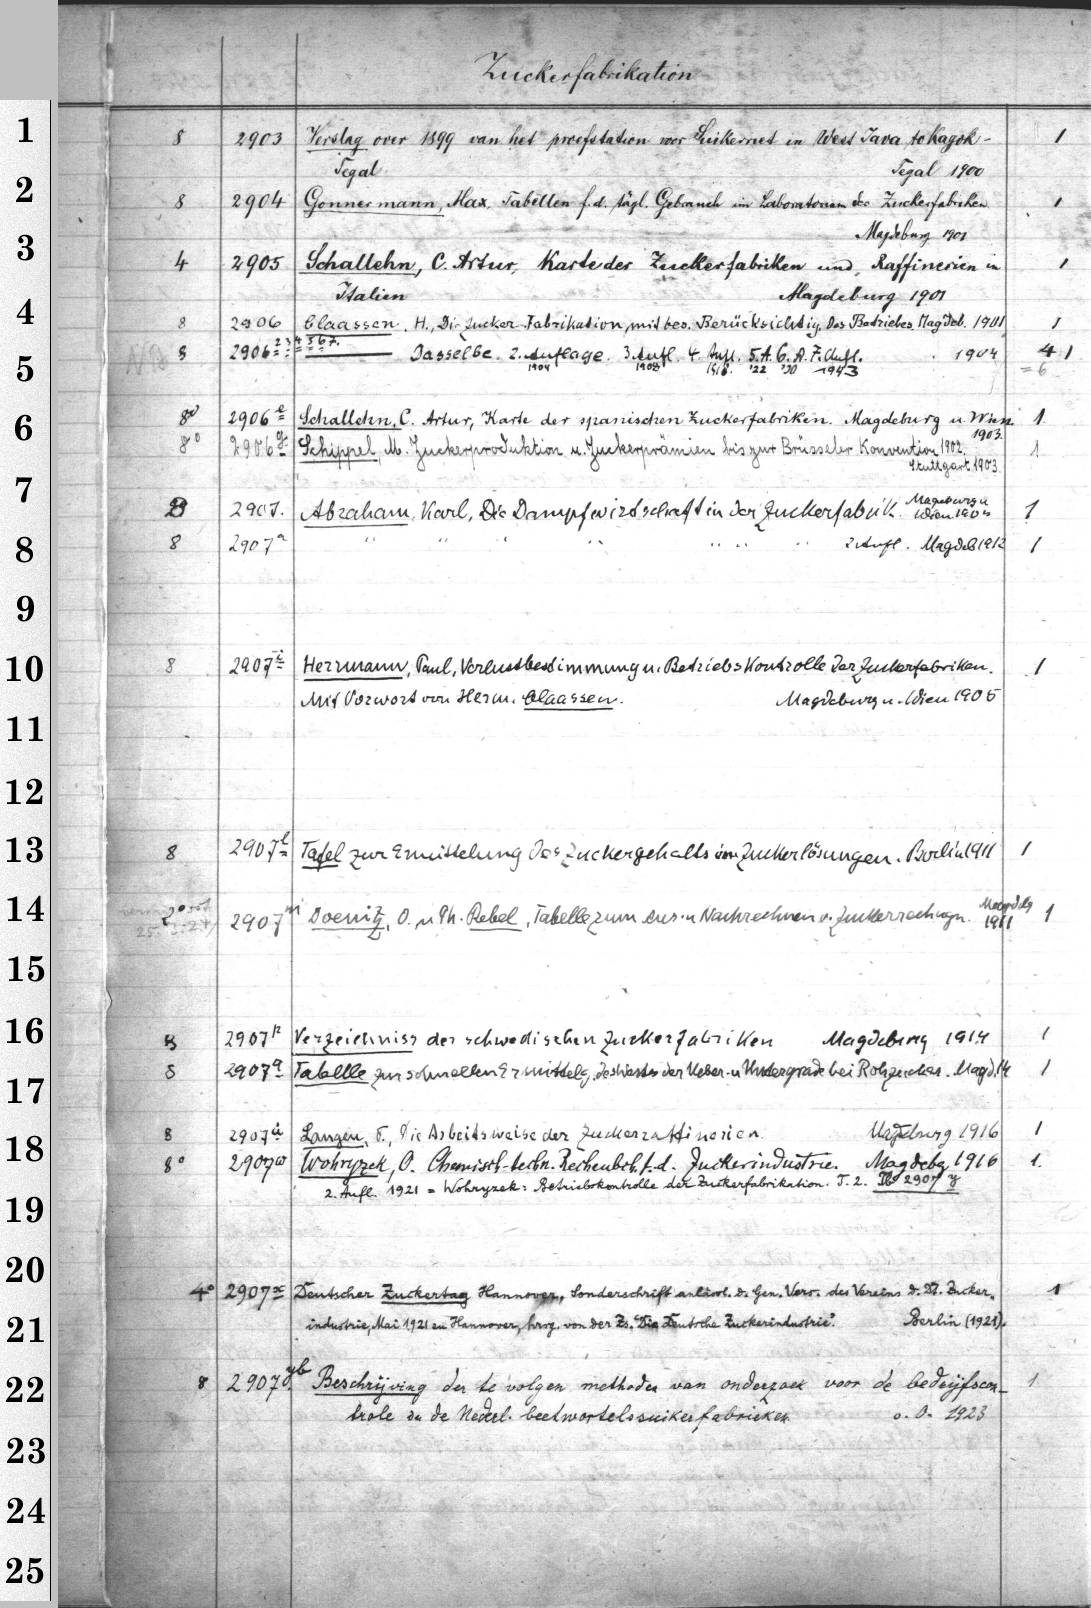 Zuckerfabrikation
8 2903 Verslag over 1899 van het proefstation voor Suikerriet in West Java te Kagok- 1
Tegal Tegal 1900
8 2904 Gonnermann, Max, Tabellen f. d. tägl. Gebrauch im Laboratorium der Zuckerfabriken 1
Magdeburg 1901
4 2905 Schallehn, C. Artur, Karte der Zuckerfabriken und Raffinerien in 1
Italien Magdeburg 1901
8 2906 Claassen, H., Die Zucker-Fabrikation, mit bes. Berücksichtig. des Betriebes. Magdeb. 1901 1
8 2906 2 3 4 5 6 7. Dasselbe. 2. Auflage. 3. Aufl. 4. Aufl. 5. A. 6. A. 7. Aufl. 1904 4 1
1904 1908 1918. '22 '30 1943 = 6
8° 2906 e Schallehn, C. Artur, Karte der spanischen Zuckerfabriken. Magdeburg u. Wien 1
1903.
8° 2906 g Schippel, M. Zuckerproduktion u. Zuckerprämien bis zur Brüsseler Konvention 1902. 1
Stuttgart 1903.
8 2907. Abraham, Karl, Die Dampfwirtschaft in der Zuckerfabrik. Magdeburg u. 1
Wien 1905
8 2907 a " " " " " " " 2. Aufl. Magdeb 1912 1
8 2907 i Herrmann, Paul, Verlustbestimmung u. Betriebskontrolle der Zuckerfabriken. 1
Mit Vorwort von Herm. Claassen. Magdeburg u. Wien 1905
8 2907 l Tafel zur Ermittelung des Zuckergehalts von Zuckerlösungen. Berlin 1911 1
2° 2907 m Doenitz, O. u. Ph. Rebel, Tabelle zum Aus- u. Nachrechnen v. Zuckerrechngn. Magdebg 1
25. 2. 27 1911
8 2907 p Verzeichniss der schwedischen Zuckerfabriken Magdeburg 1914 1
8 2907 q Tabelle zur schnellen Ermittelg. des Wertes der Ueber- u. Untergrade bei Rohzucker. Magd. 14 1
8 2907 u Langen, F., Die Arbeitsweise der Zuckerraffinerien. Magdeburg 1916 1
8° 2907 w Wohryzek, O. Chemisch-techn. Rechenbch. f. d. Zuckerindustrie. Magdebg 1916 1.
2. Aufl. 1921 = Wohryzek: Betriebskontrolle der Zuckerfabrikation. T. 2. Tb 2907 y
4° 2907 x Deutscher Zuckertag Hannover, Sonderschrift anlässl. d. Gen. Vers. des Vereins d. Dt. Zucker- 1
industrie, Mai 1921 zu Hannover, hrsg. von der Zs. "Die Deutsche Zuckerindustrie". Berlin (1921).
8 2907 yb Beschrijving der te volgen methoden van onderzoek voor de bedrijfscon- 1
trole in de Nederl. beetwortelsuikerfabrieken o. O. 1923
1
2
3
4
5
6
7
8
9
10
11
12
13
14
15
16
17
18
19
20
21
22
23
24
25